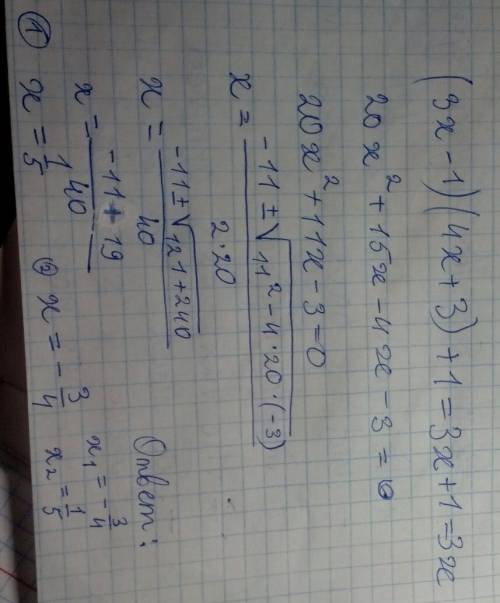 (3x-1)(4x+3)+1=3x+1=3x
20x²+15x-4x-3=0
20x²+11x-3=0
x = (-11±√(11²-4·20·(-3)))/(2·20)
x = (-11±√(121+240))/40
x = (-11+19)/40
① x = 1/5
② x = -3/4
Ответ:
x₁ = -3/4
x₂ = 1/5